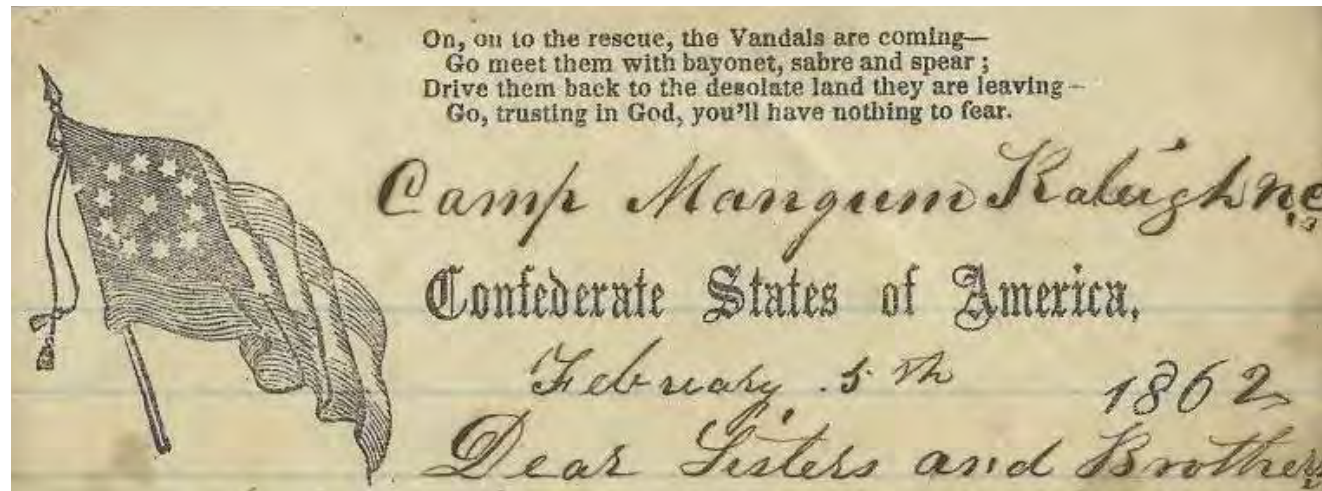 On, on to the rescue, the Vandals are coming—
Go meet them with bayonet, sabre and spear;
Drive them back to the desolate land they are leaving—
Go, trusting in God, you'll have nothing to fear.
Camp Mangum Raleigh N.C
Confederate States of America,
February 5th 1862
Dear Sisters and Brothers